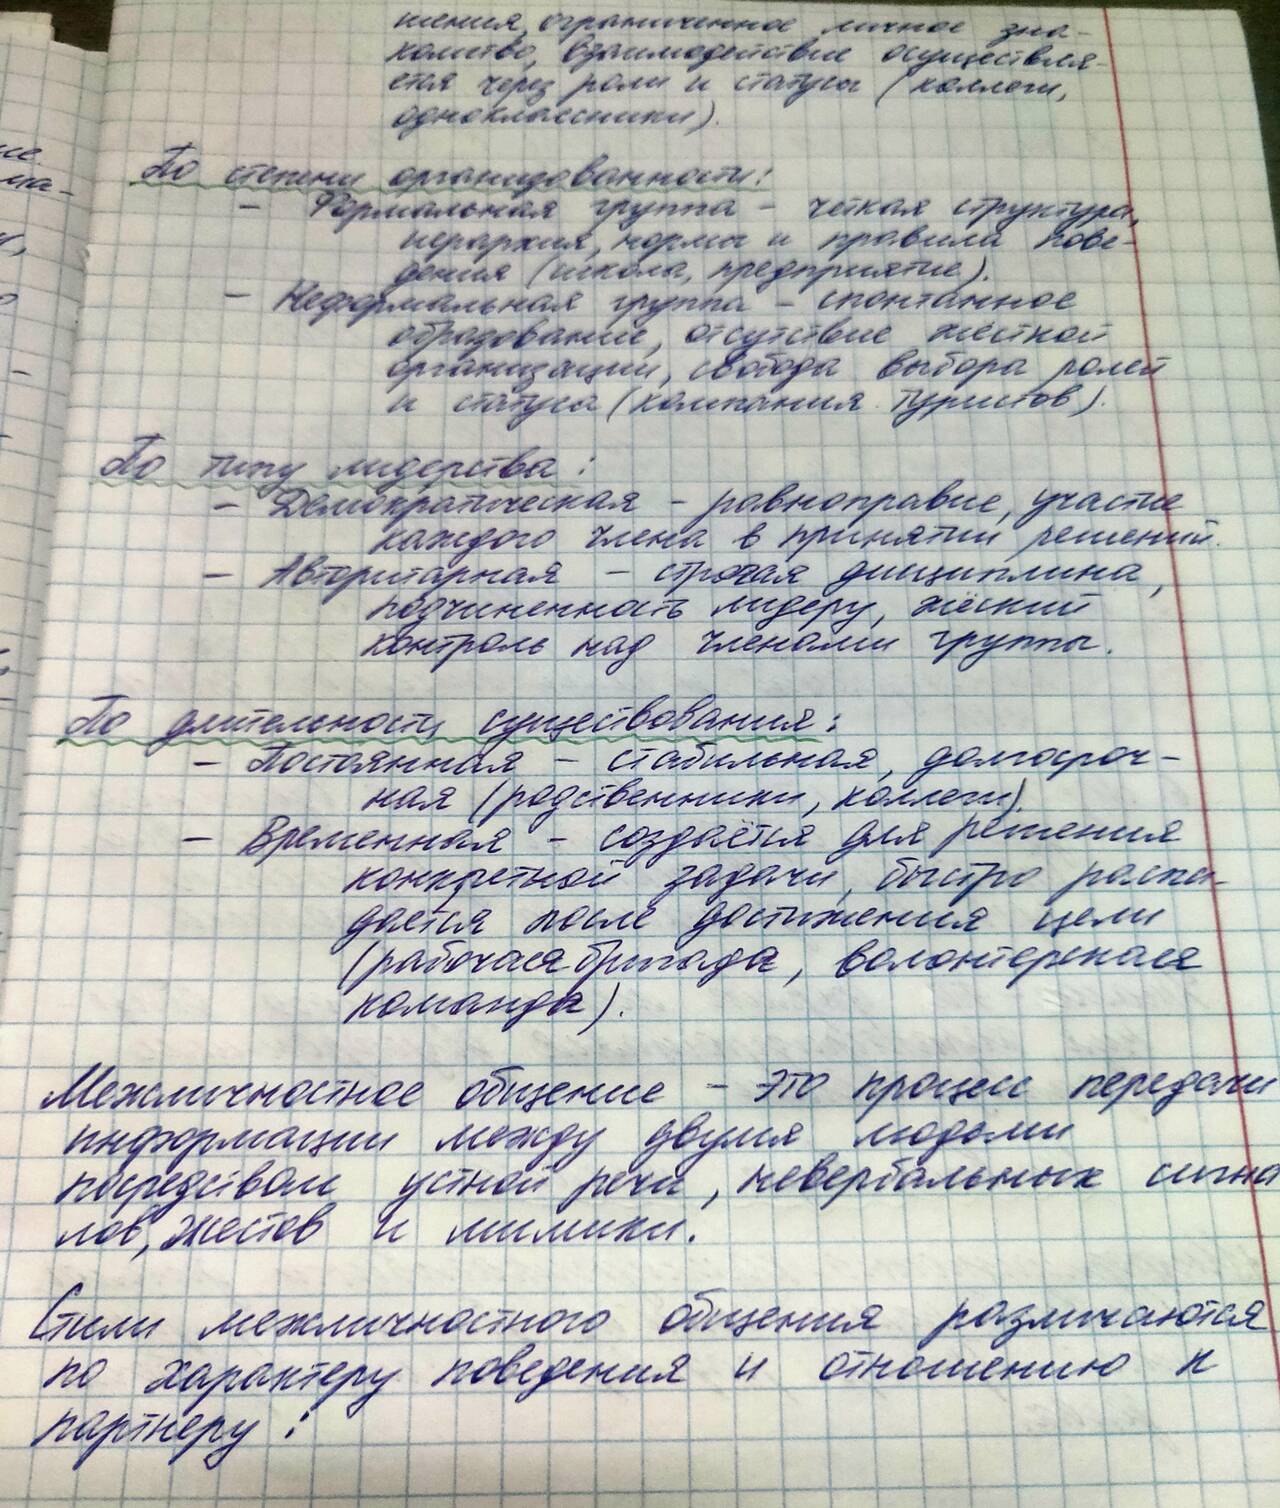 шения, ограниченное личное зна-
комство, взаимодействие осуществля-
ется через роли и статусы (коллеги,
одноклассники).
По степени организованности:
- Формальная группа - чёткая структура,
иерархия, нормы и правила пове-
дения (школа, предприятие).
- Неформальная группа - спонтанное
образование, отсутствие жёсткой
организации, свобода выбора ролей
и статуса (компания туристов).
По типу лидерства:
- Демократическая - равноправие, участие
каждого члена в принятии решений.
- Авторитарная - строгая дисциплина,
подчиненность лидеру, жёский
контроль над членами группы.
По длительности существования:
- Постоянная - стабильная, долгосроч-
ная (родственники, коллеги).
- Временная - создаётся для решения
конкретной задачи, быстро распа-
дается после достижения цели
(рабочая бригада, волонтерская
команда).
Межличностное общение - это процесс передачи
информации между двумя людьми
посредством устной речи, невербальных сигна
лов, жестов и мимики.
Стили межличностного общения различаются
по характеру поведения и отношению к
партнеру: